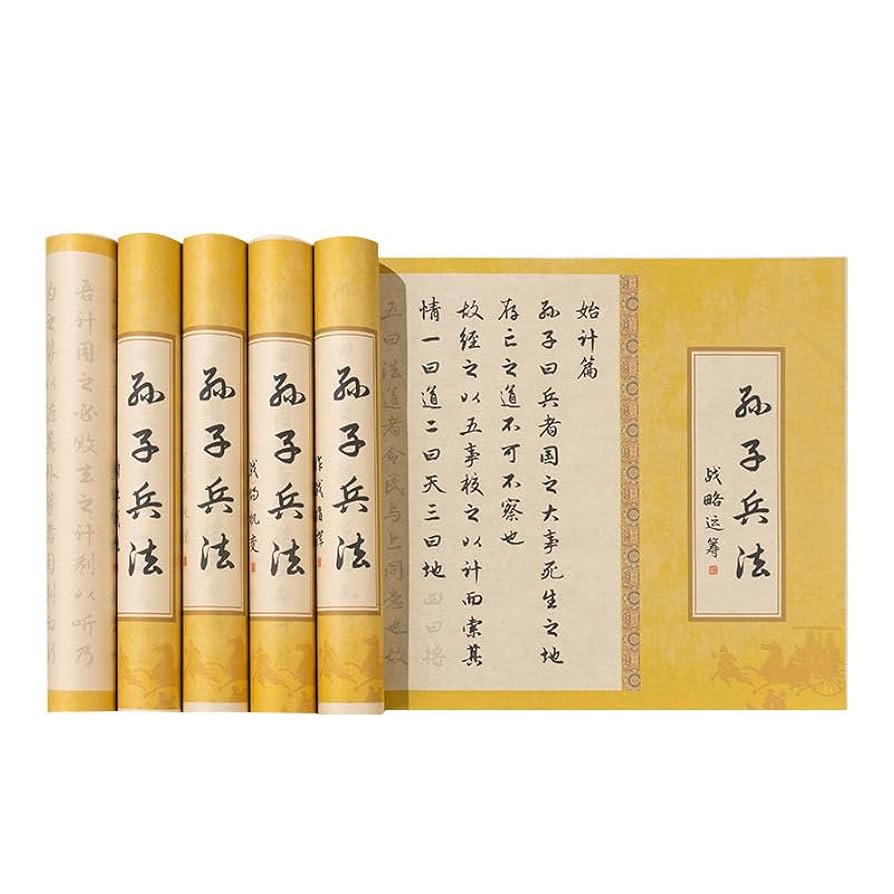 孙子兵法
战略运筹
始计篇
孙子曰兵者国之大事死生之地
存亡之道不可不察也
故经之以五事校之以计而索其
情一曰道二曰天三曰地四曰将
五曰法道者令民与上同意也故
孙子兵法
作战指挥
孙子兵法
机变
孙子兵法
孙子兵法
吾计用之必败去之计利以听乃